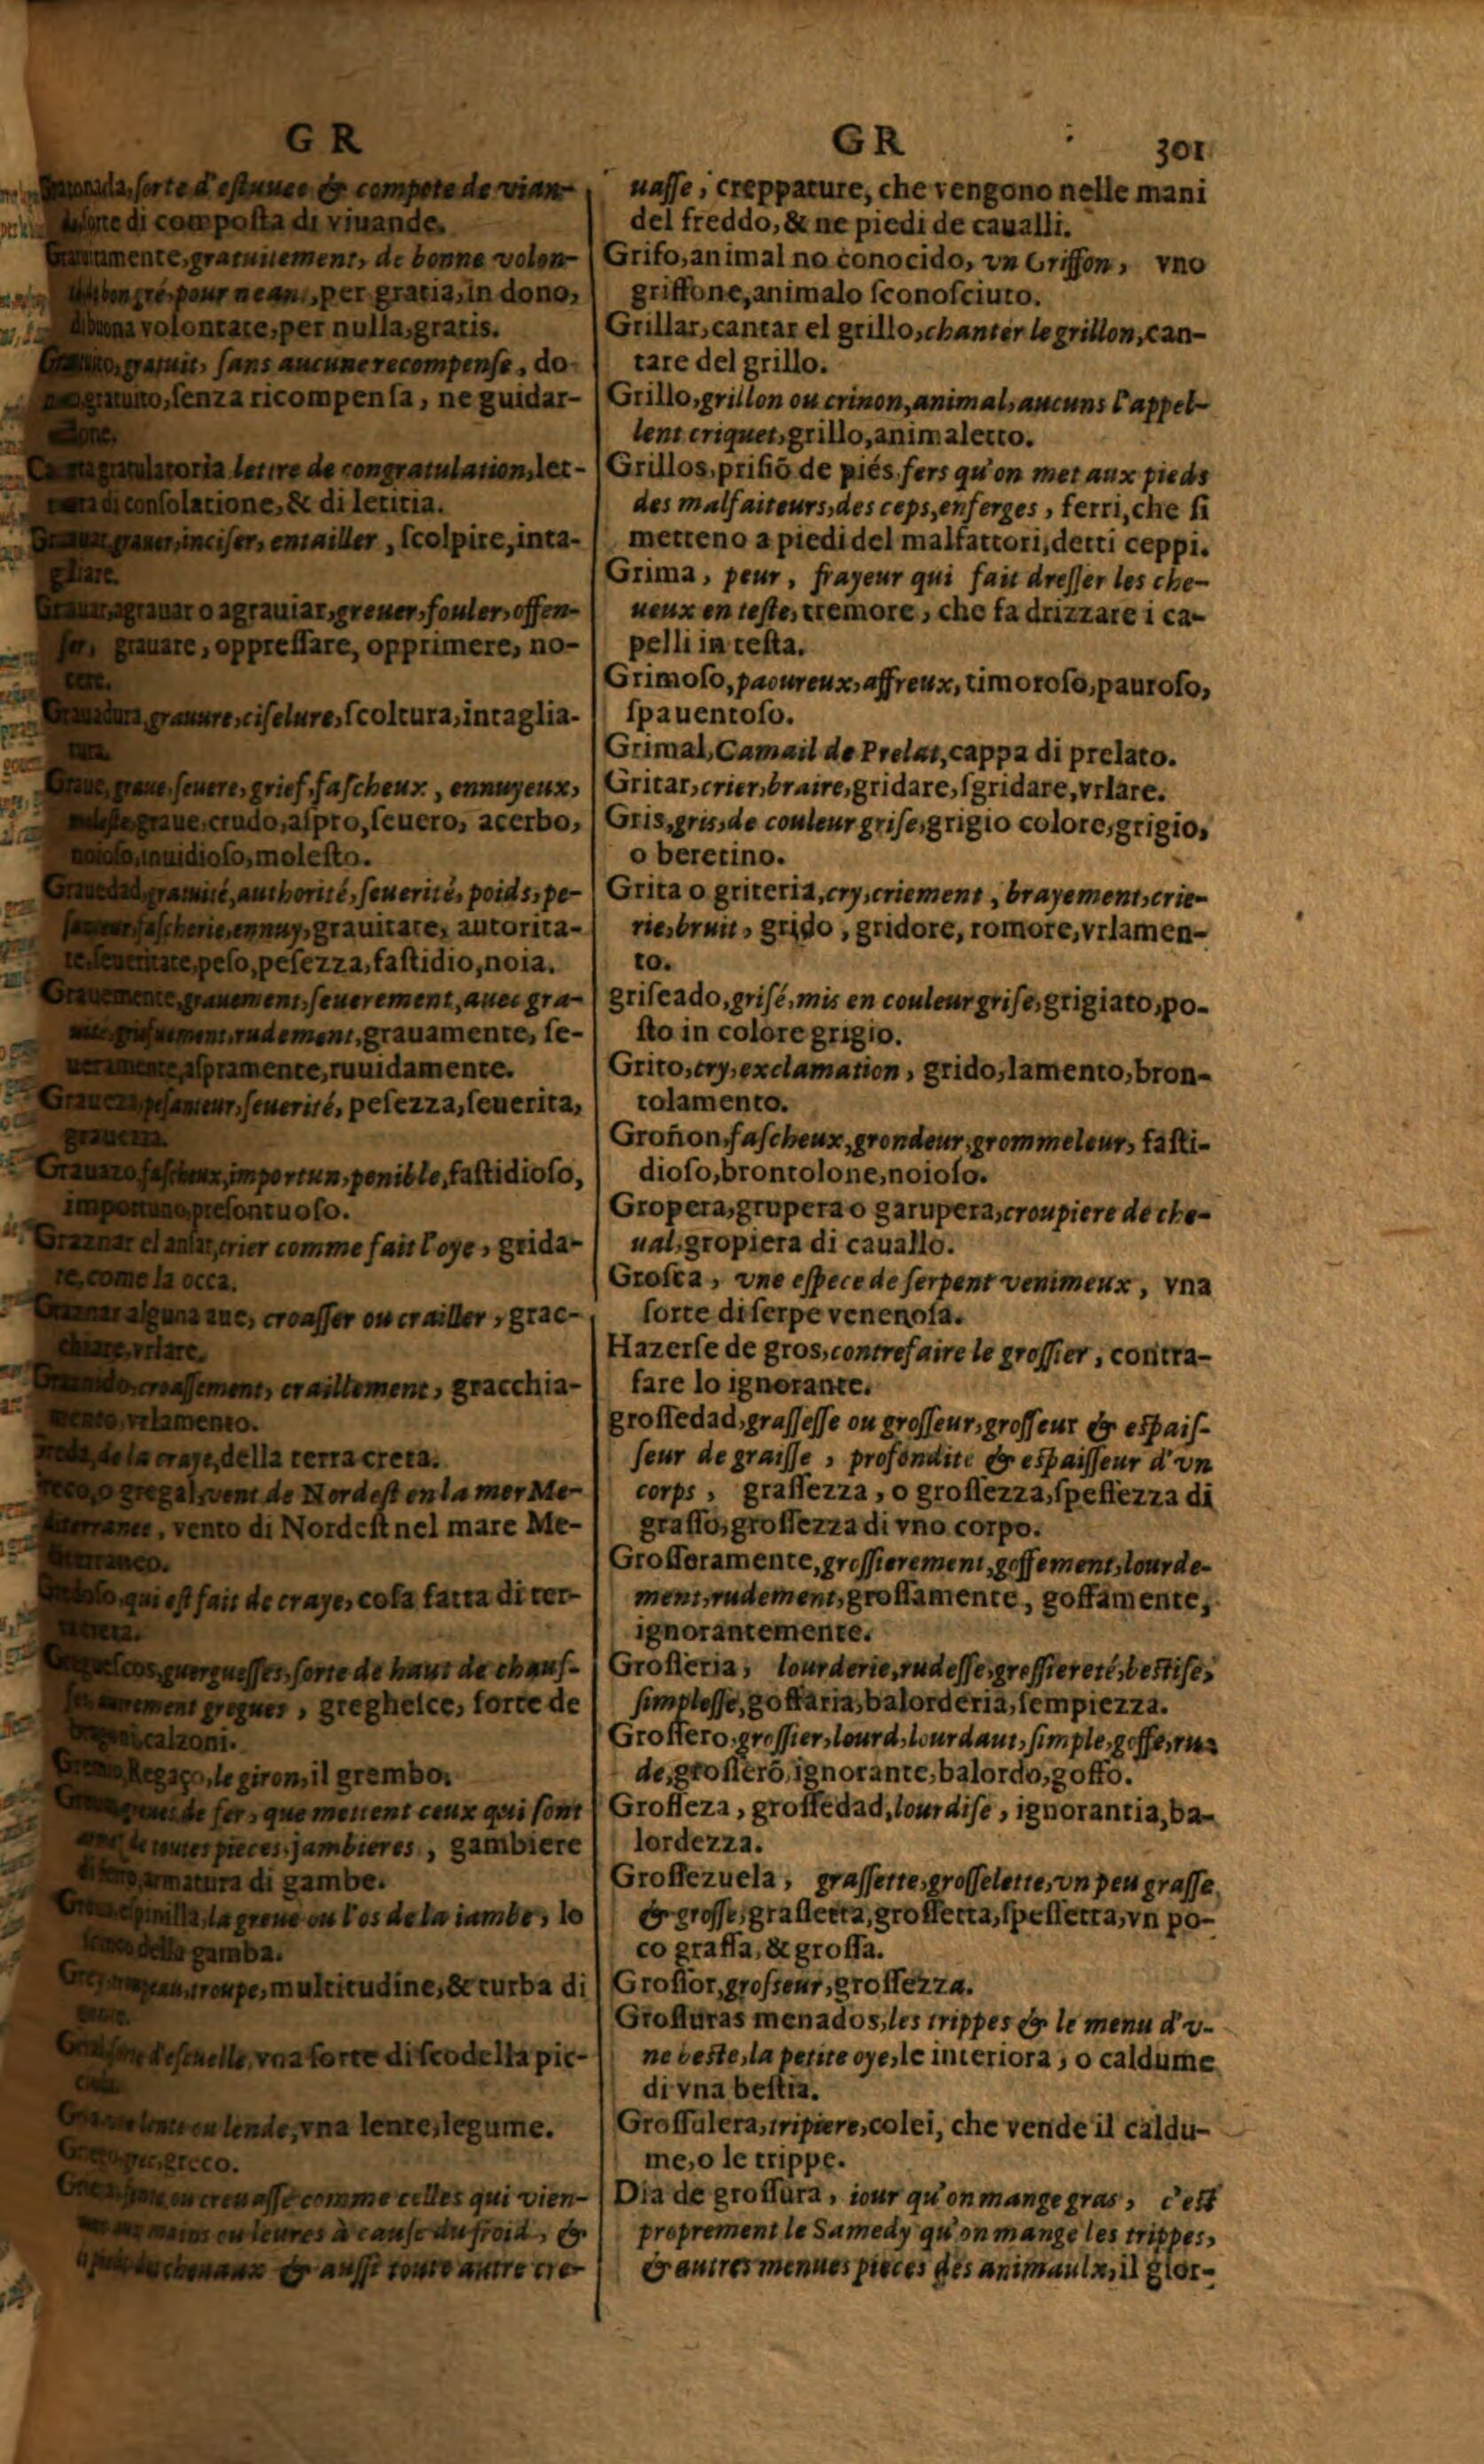 GR
GR
301
sorte d'estuuee & compote de vian-
di composta di viuande.
gratuitement, de bonne volon-
pour neant, per gratia, in dono,
volontate, per nulla, gratis.
gratuit, sans aucune recompense, do-
gratuito, senza ricompensa, ne guidar-
done.
gratulatoria lettre de congratulation, let-
di consolatione, & di letitia.
grauer, inciser, entailler, scolpire, inta-
gliare.
agrauar o agrauiar, greuer, fouler, offen-
ser, grauare, oppressare, opprimere, no-
cere.
Grauadura, grauure, ciselure, scoltura, intaglia-
tura.
Graue, graue, seuere, grief, fascheux, ennuyeux,
graue, crudo, aspro, seuero, acerbo,
noioso, inuidioso, molesto.
Grauedad, grauité, authorité, seuerité, poids, pe-
fascherie, ennuy, grauitate, autorita-
te, seueritate, peso, pesezza, fastidio, noia.
Grauemente, grauement, seuerement, auec gra-
rudement, grauamente, se-
ueramente, aspramente, ruuidamente.
Graueza, pesanteur, seuerité, pesezza, seuerita,
grauezza.
fascheux, importun, penible, fastidioso,
importuno, presontuoso.
Graznar el ansar, crier comme fait l'oye, grida-
re, come la occa.
Graznar alguna aue, croasser ou crailler, grac-
chiare, vrlare.
Graznido, croassement, craillement, gracchia-
mento, vrlamento.
de la craye, della terra creta.
o gregal, vent de Nordest en la mer Me-
diterranee, vento di Nordest nel mare Me-
diterraneo.
qui est fait de craye, cosa fatta di ter-
ra creta.
guerguesses, sorte de haut de chauf-
gregues, greghesce, sorte de
calzoni.
Regaço, le giron, il grembo.
de fer, que mettent ceux qui sont
de toutes pieces, jambieres, gambiere
di ferro, armatura di gambe.
espinilla, la greue ou l'os de la iambe, lo
della gamba.
troupe, multitudine, & turba di
d'escuelle, vna sorte di scodella pic-
lente ou lende, vna lente, legume.
grec, greco.
ou creuasse comme celles qui vien-
mains ou leures à cause du froid, &
cheuaux & aussi toute autre cre-
uasse, creppature, che vengono nelle mani
del freddo, & ne piedi de caualli.
Grifo, animal no conocido, vn Griffon, vno
griffone, animalo sconosciuto.
Grillar, cantar el grillo, chanter le grillon, can-
tare del grillo.
Grillo, grillon ou crinon, animal, aucuns l'appel-
lent criquet, grillo, animaletto.
Grillos, prisiõ de piés, fers qu'on met aux pieds
des malfaiteurs, des ceps, enferges, ferri, che si
metteno a piedi del malfattori, detti ceppi.
Grima, peur, frayeur qui fait dresser les che-
ueux en teste, tremore, che fa drizzare i ca-
pelli in testa.
Grimoso, paoureux, affreux, timoroso, pauroso,
spauentoso.
Grimal, Camail de Prelat, cappa di prelato.
Gritar, crier, braire, gridare, sgridare, vrlare.
Gris, gris, de couleur grise, grigio colore, grigio,
o beretino.
Grita o griteria, cry, criement, brayement, crie-
rie, bruit, grido, gridore, romore, vrlamen-
to.
griseado, grisé, mis en couleur grise, grigiato, po-
sto in colore grigio.
Grito, cry, exclamation, grido, lamento, bron-
tolamento.
Groñon, fascheux, grondeur, grommeleur, fasti-
dioso, brontolone, noioso.
Gropera, grupera o garupera, croupiere de che-
ual, gropiera di cauallo.
Grosca, vne espece de serpent venimeux, vna
sorte di serpe venenosa.
Hazerse de gros, contrefaire le grossier, contra-
fare lo ignorante.
grossedad, grassesse ou grosseur, grosseur & espais-
seur de graisse, profondite & espaisseur d'vn
corps, grassezza, o grossezza, spessezza di
grasso, grossezza di vno corpo.
Grosseramente, grossierement, goffement, lourde-
ment, rudement, grossamente, goffamente,
ignorantemente.
Grosseria, lourderie, rudesse, grossiereté, bestise,
simplesse, goffaria, balorderia, sempiezza.
Grossero, grossier, lourd, lourdaut, simple, goffe, ru-
de, grosserõ, ignorante, balordo, goffo.
Grosseza, grossedad, lourdise, ignorantia, ba-
lordezza.
Grossezuela, grassette, grosselette, vn peu grasse
& grosse, grassetta, grossetta, spessetta, vn po-
co grassa, & grossa.
Grossor, grosseur, grossezza.
Grossuras menados, les trippes & le menu d'v-
ne beste, la petite oye, le interiora, o caldume
di vna bestia.
Grossulera, tripiere, colei, che vende il caldu-
me, o le trippe.
Dia de grossura, iour qu'on mange gras, c'est
proprement le Samedy qu'on mange les trippes,
& autres menues pieces des animaulx, il gior-